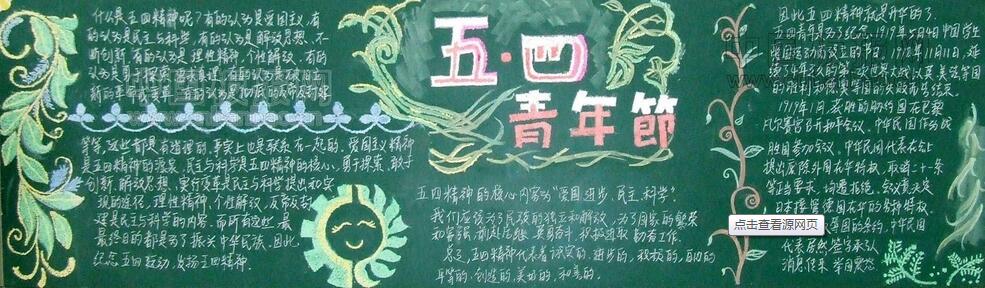 什么是五四精神呢？有的认为是爱国主义，有
的认为是民主与科学，有的认为是解放思想、不
断创新，有的认为是理性精神、个性解放，有的
认为是勇于探索、追求真理，有的认为是破旧立
新的革命或变革，有的认为是彻底的反帝反封建
等等，这些都是有道理的，事实上也是联系在一起的，爱国主义精神
是五四精神的源泉，民主与科学是五四精神的核心，勇于探索、敢于
创新、解放思想、实行变革是民主与科学提出和实
现的途径，理性精神、个性解放、反帝反封
建是民主与科学的内容，而所有这些，最
最终目的都是为了振兴中华民族。因此，
纪念五四运动，发扬五四精神。
五·四
青年節
五四精神的核心内容为“爱国、进步、民主、科学”。
我们应该为了民族的独立和解放，为了国家的繁荣
和富强，
总之，五四精神代表着诚实的、进步的、积极的、自由的
平等的、创造的、美的、和善的。
因此五四精神就是升华的了。
五四青年是为了纪念1919年5月4日中国学生
爱国运动而设立的节日，1918年11月11日，延
续了4年之久的第一次世界大战以英、美、法等国
的胜利和德奥等国的失败而结束。
1919年1月，获胜的协约国在巴黎
凡尔赛宫召开和平会议，中华民国作为战
胜国参加会议，中华民国代表在会上
提出废除外国在华特权，取消二十一条
等正当要求，均遭拒绝。会议竟决定
日本接管德国在华的各种特权，
中华民国
代表居然签字承认
消息传来，举国震怒
点击查看源网页